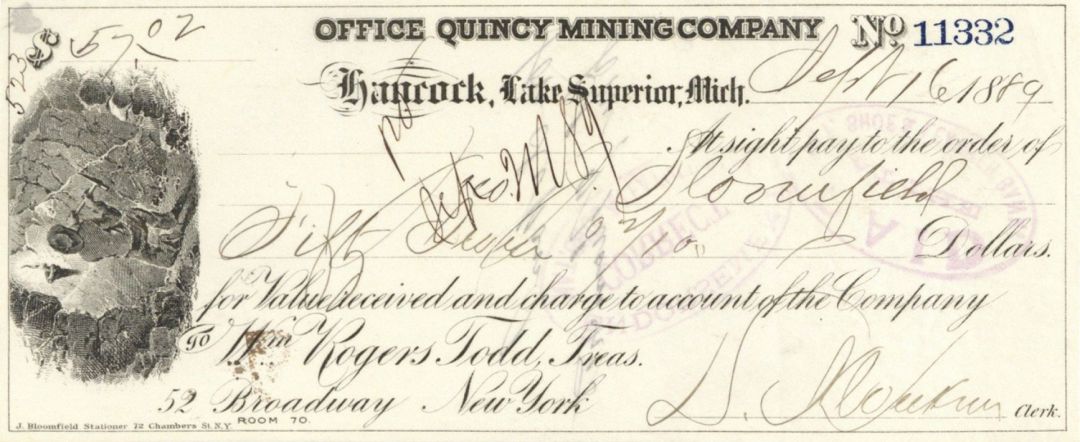 OFFICE QUINCY MINING COMPANY No 11332
523 $ 57.02
Hancock, Lake Superior, Mich. Sept 16 1889
At sight pay to the order of
Bloomfield
Fifty Seven 02/100 Dollars.
for Value received and charge to account of the Company
To Wm Rogers Todd, Treas.
52 Broadway New York
ROOM 70.
Clerk.
J. Bloomfield Stationer 72 Chambers St. N.Y.